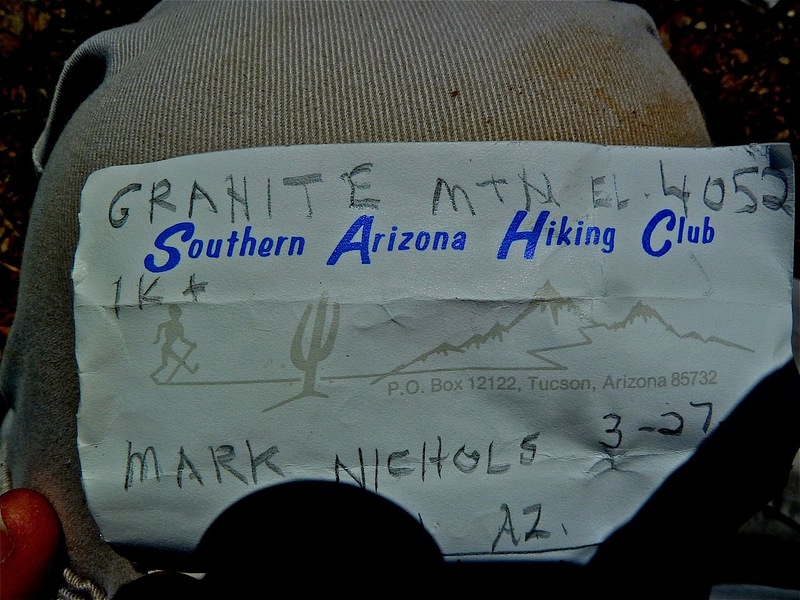 GRANITE MTN EL. 4052
Southern Arizona Hiking Club
1K+
P.O. Box 12122, Tucson, Arizona 85732
MARK NICHOLS 3-27
AZ.